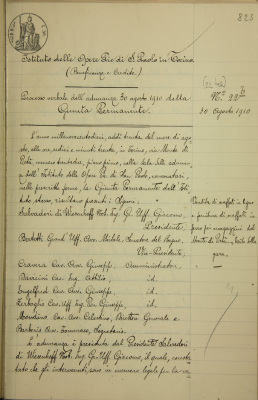 828
Istituto delle Opere Pie di S. Paolo in Torino
(Beneficenza e Credito)
Processo verbale dell'adunanza 30 agosto 1910 della
Giunta Permanente.
N.° 22
30 Agosto 1910
L'anno millenovecentodieci, addì trenta del mese di ago-
sto, alle ore sedici e minuti trenta, in Torino, via Monte di
Pietà, numero trentadue, piano primo, nella sala delle adunan-
ze, dell'Istituto delle Opere Pie di San Paolo, convocatasi,
nelle prescritte forme, la Giunta Permanente dell'Isti-
tuto stesso, vi sono presenti i Signori:
Salvadori di Wiesenhoff Nob. Ing. Gr. Uff. Giacomo,
Presidente;
Bertetti Grand' Uff. Avv. Michele, Senatore del Regno,
Vice-Presidente;
Cravera Cav. Avv. Giuseppe, Amministratore;
Bavo Cav. Ing. Attilio, id.
Engelfred Cav. Avv. Giuseppe, id.
Verboglio Cav. Uff. Ing. Giuseppe, id.
Mondino Cav. Avv. Celestino, Direttore Generale e
Barberis Avv. Tommaso, Segretario.
L'adunanza è presieduta dal Presidente Salvadori
di Wiesenhoff Nob. Ing. Gr. Uff. Giacomo, il quale, consta-
tato che gli intervenuti sono in numero legale per la va-